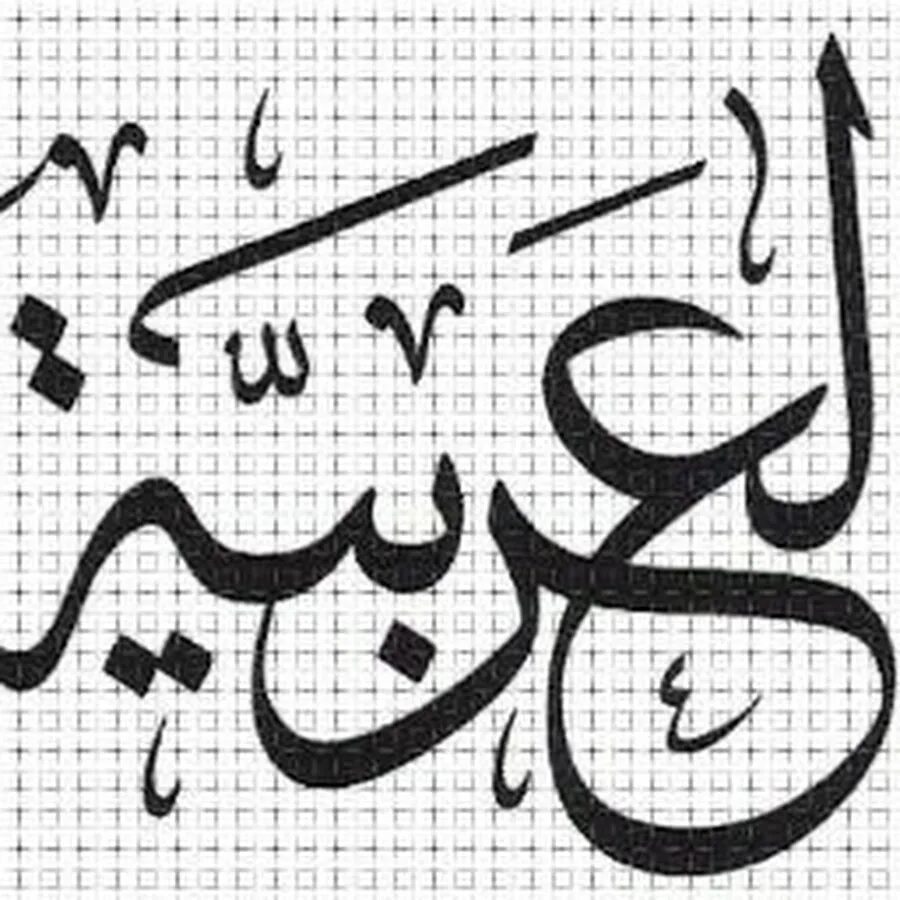 لعَربيّة